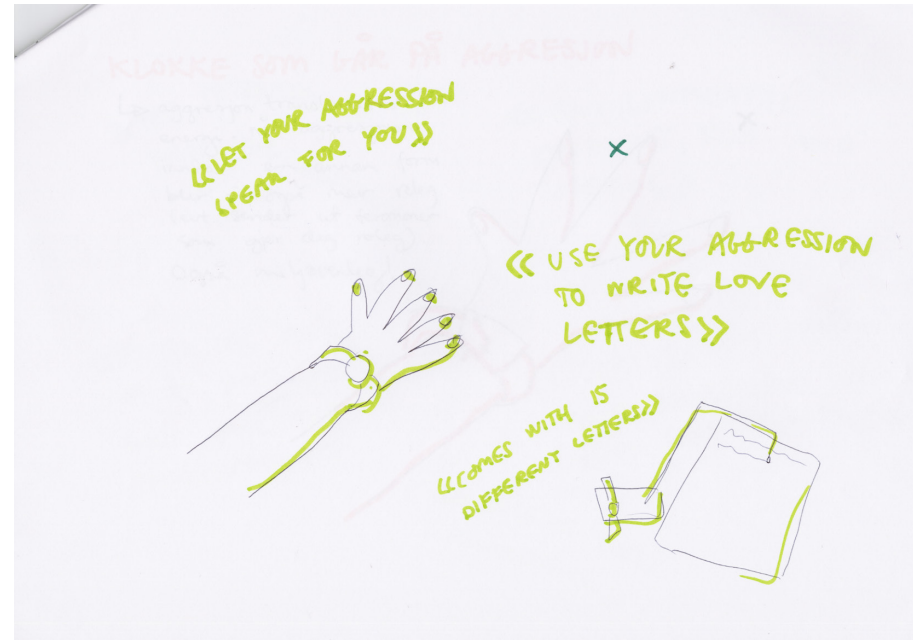 KLOKKE SOM GÅR PÅ AGGRESJON
«LET YOUR AGGRESSION
SPEAK FOR YOU»
«USE YOUR AGGRESSION
TO WRITE LOVE
LETTERS»
«COMES WITH 15
DIFFERENT LETTERS»